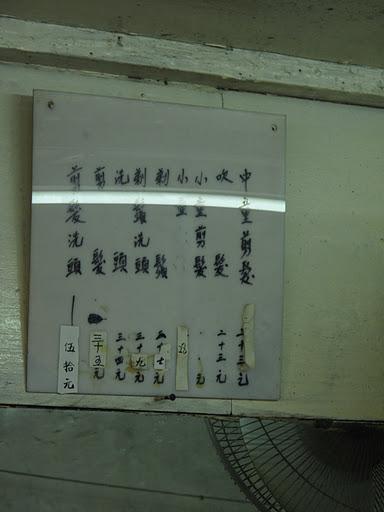 中童剪髮 二十三元
吹髮 二十三元
小童剪髮 元
小童
剃鬚 三十七元
剃鬚洗頭 三十九元
洗頭 三十四元
剪髮 三十五元
剪髮洗頭 伍拾元